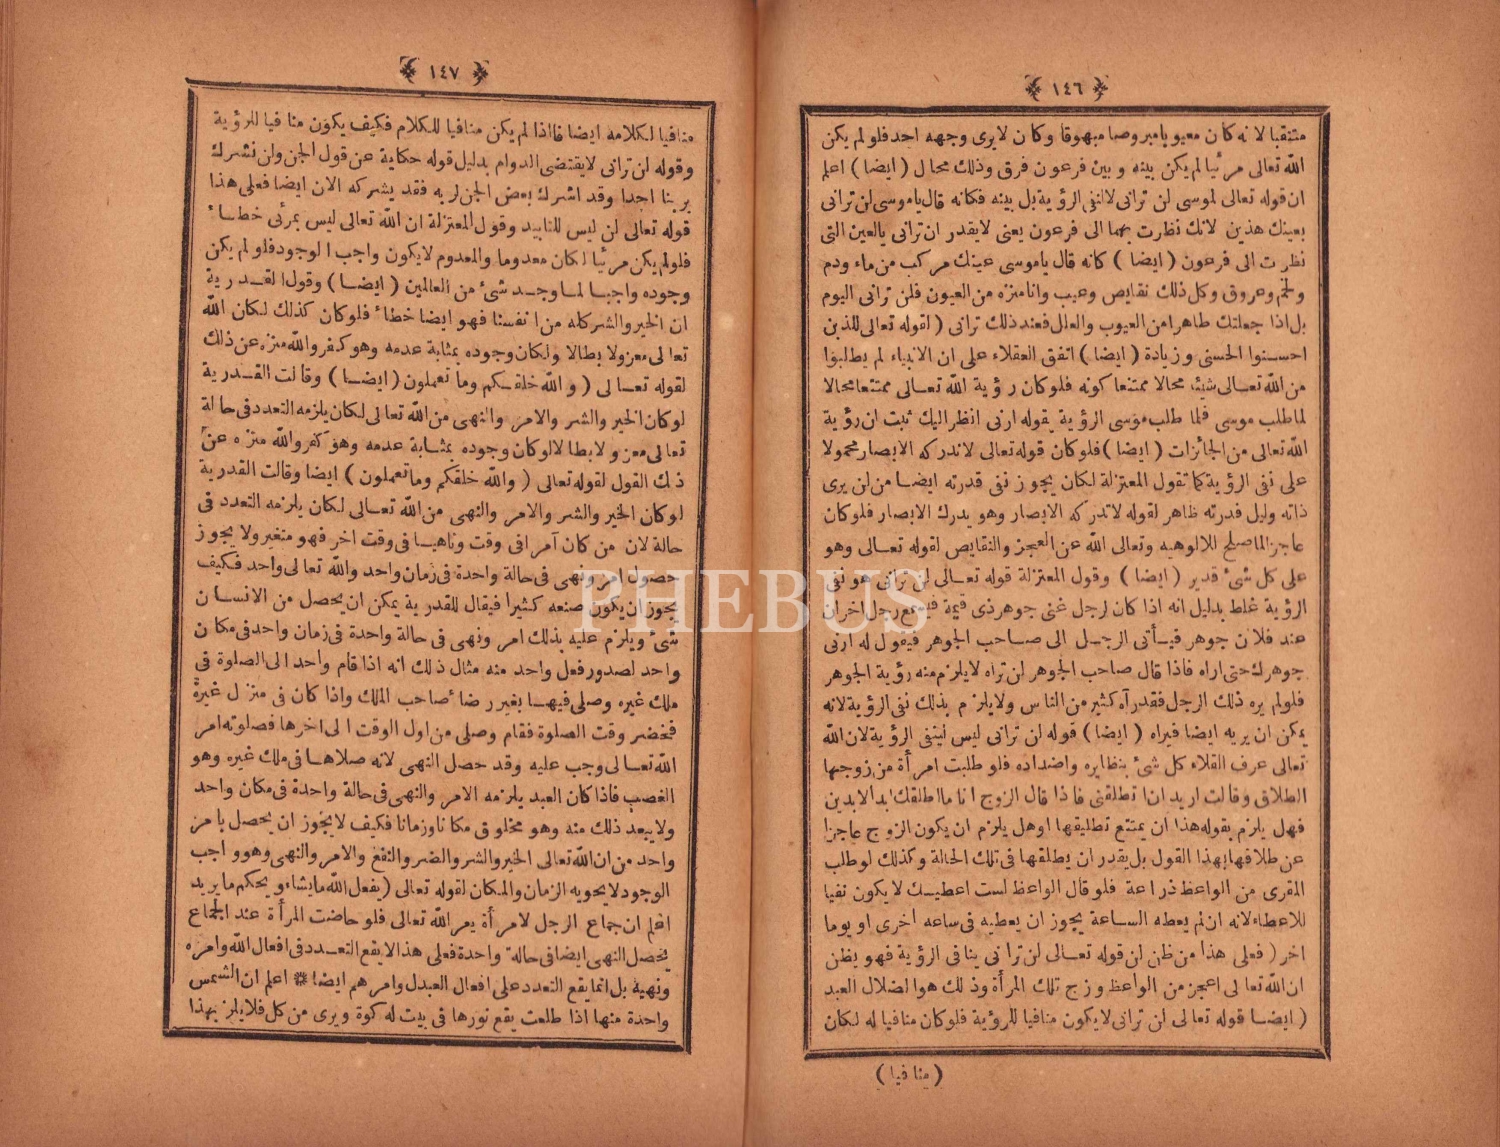 ١٤٦
متنقبا لانه كان معيوبا مبروصا مبهوقا وكان لا يرى وجهه احد فلو لم يكن
الله تعالى مرئيا لم يكن بينه وبين فرعون فرق وذلك محال ( ايضا ) اعلم
ان قوله تعالى لموسى لن ترانى لا لنفى الرؤية بل بينه فكانه قال ياموسى لن ترانى
بعينك هذين لانك نظرت بهما الى فرعون يعنى لا يقدر ان ترانى بالعين التى
نظرت الى فرعون ( ايضا ) كانه قال ياموسى عينك مركب من ماء ودم
ولحم وعروق وكل ذلك نقايص وعيب وانا منزه من العيون فلن ترانى اليوم
بل اذا جعلتك طاهرا من العيوب والعلل فعند ذلك ترانى ( لقوله تعالى للذين
احسنوا الحسنى وزيادة ( ايضا ) اتفق العقلاء على ان الانبياء لم يطلبوا
من الله تعالى شيئا محالا ممتنعا كونه فلو كان رؤية الله تعالى ممتنعا محالا
لما طلب موسى فلما طلب موسى الرؤية بقوله ارنى انظر اليك ثبت ان رؤية
الله تعالى من الجائزات ( ايضا ) فلو كان قوله تعالى لا تدركه الابصار محمولا
على نفى الرؤية كما تقول المعتزلة لكان يجوز نفى قدرته ايضا من لن يرى
ذاته وليل قدرته ظاهر لقوله لا تدركه الابصار وهو يدرك الابصار فلو كان
عاجزا لما صلح للالوهيه وتعالى الله عن العجز والنقايص لقوله تعالى وهو
على كل شئ قدير ( ايضا ) وقول المعتزلة قوله تعالى لن ترانى هو نفى
الرؤية غلط بدليل انه اذا كان لرجل غنى جوهر ذى قيمة فيسمع رجل اخر ان
عند فلان جوهر فيأتى الرجل الى صاحب الجوهر فيقول له ارنى
جوهرك حتى اراه فاذا قال صاحب الجوهر لن تراه لا يلزم منه رؤية الجوهر
فلو لم يره ذلك الرجل فقد رآه كثير من الناس ولا يلزم بذلك نفى الرؤية لانه
يمكن ان يريه ايضا فيراه ( ايضا ) قوله لن ترانى ليس لينفى الرؤية لان الله
تعالى عرف القلاء كل شئ بنظايره واضداده فلو طلبت امرأة من زوجها
الطلاق وقالت اريد ان تطلقنى فاذا قال الزوج انا ما اطلقك ابد الابدين
فهل يلزم بقوله هذا ان يمتنع تطليقها او هل يلزم ان يكون الزوج عاجزا
عن طلاقها بهذا القول بل يقدر ان يطلقها فى تلك الحالة وكذلك لو طلب
المقرى من الواعظ ذراعة فلو قال الواعظ لست اعطيك لا يكون نفيا
للاعطاء لانه ان لم يعطه الساعة يجوز ان يعطيه فى ساعه أخرى او يوما
اخر ( فعلى هذا من ظن ان قوله تعالى لن ترانى ينافى الرؤية فهو يظن
ان الله تعالى اعجز من الواعظ وزج تلك المرأة وذلك هو اضلال العبد
( ايضا قوله تعالى لن ترانى لا يكون منافيا للرؤية فلو كان منافيا له لكان
( منافيا )
١٤٧
منافيا لكلامه ايضا فااذا لم يكن منافيا للكلام فكيف يكون منافيا للرؤية
وقوله لن ترانى لا يقتضى الدوام بدليل قوله حكاية عن قول الجن ولن نشرك
بربنا احدا وقد اشرك بعض الجن لربه فقد يشركه الان ايضا فعلى هذا
قوله تعالى لن ليس للتابيد وقول المعتزلة ان الله تعالى ليس بمرئى خطاء
فلو لم يكن مرئيا لكان معدوما والمعدوم لا يكون واجب الوجود فلو لم يكن
وجوده واجبا لما وجد شئ من العالمين ( ايضا ) وقول القدرية
ان الخير والشر كله من انفسنا فهو ايضا خطاء فلو كان كذلك لكان الله
تعالى معزولا بطالا ولكان وجوده بمثابة عدمه وهو كفر والله منزه عن ذلك
لقوله تعالى ( والله خلقكم وما تعملون ( ايضا ) وقالت القدرية
لو كان الخير والشر والامر والنهى من الله تعالى لكان يلزمه التعدد فى حالة
تعالى معزولا بطالا لو كان وجوده بمثابة عدمه وهو كفر والله منزه عن
ذلك القول لقوله تعالى ( والله خلقكم وما تعملون ) ايضا وقالت القدرية
لو كان الخير والشر والامر والنهى من الله تعالى لكان يلزمه التعدد فى
حالة لان من كان آمرا فى وقت وناهيا فى وقت اخر فهو متغير ولا يجوز
حصول امر ونهى فى حالة واحدة فى زمان واحد والله تعالى واحد فكيف
يجوز ان يكون صنعه كثيرا فيقال للقدرية يمكن ان يحصل من الانسان
شئ ويلزم عليه بذلك امر ونهى فى حالة واحدة فى زمان واحد فى مكان
واحد لصدور فعل واحد منه مثال ذلك انه اذا قام واحد الى الصلوة فى
ملك غيره وصلى فيها بغير رضاء صاحب الملك واذا كان فى منزل غيره
فحضر وقت الصلوة فقام وصلى من اول الوقت الى اخرها فصلوته امر
الله تعالى وجب عليه وقد حصل النهى لانه صلاها فى ملك غيره وهو
الغصب فاذا كان العبد يلزمه الامر والنهى فى حالة واحدة فى مكان واحد
ولا يبعد ذلك منه وهو مخلوق مكانا وزمانا فكيف لا يجوز ان يحصل بامر
واحد من ان الله تعالى الخير والشر والضر والنفع والامر والنهى وهو واجب
الوجود لا يحويه الزمان والمكان لقوله تعالى ( يفعل الله ما يشاء ويحكم ما يريد
اعلم ان جماع الرجل لامرأة بعر الله تعالى فلو حاضت المرأة عند الجماع
يحصل النهى ايضا فى حالة واحدة فعلى هذا لا يقع التعدد فى افعال الله وامره
ونهية بل انما يقع التعدد على افعال العبد ل وامرهم ايضا ❋ اعلم ان الشمس
واحدة منها اذا طلعت يقع نورها فى بيت له كوة ويرى من كل فلا يلزم بهذا
PHEBUS